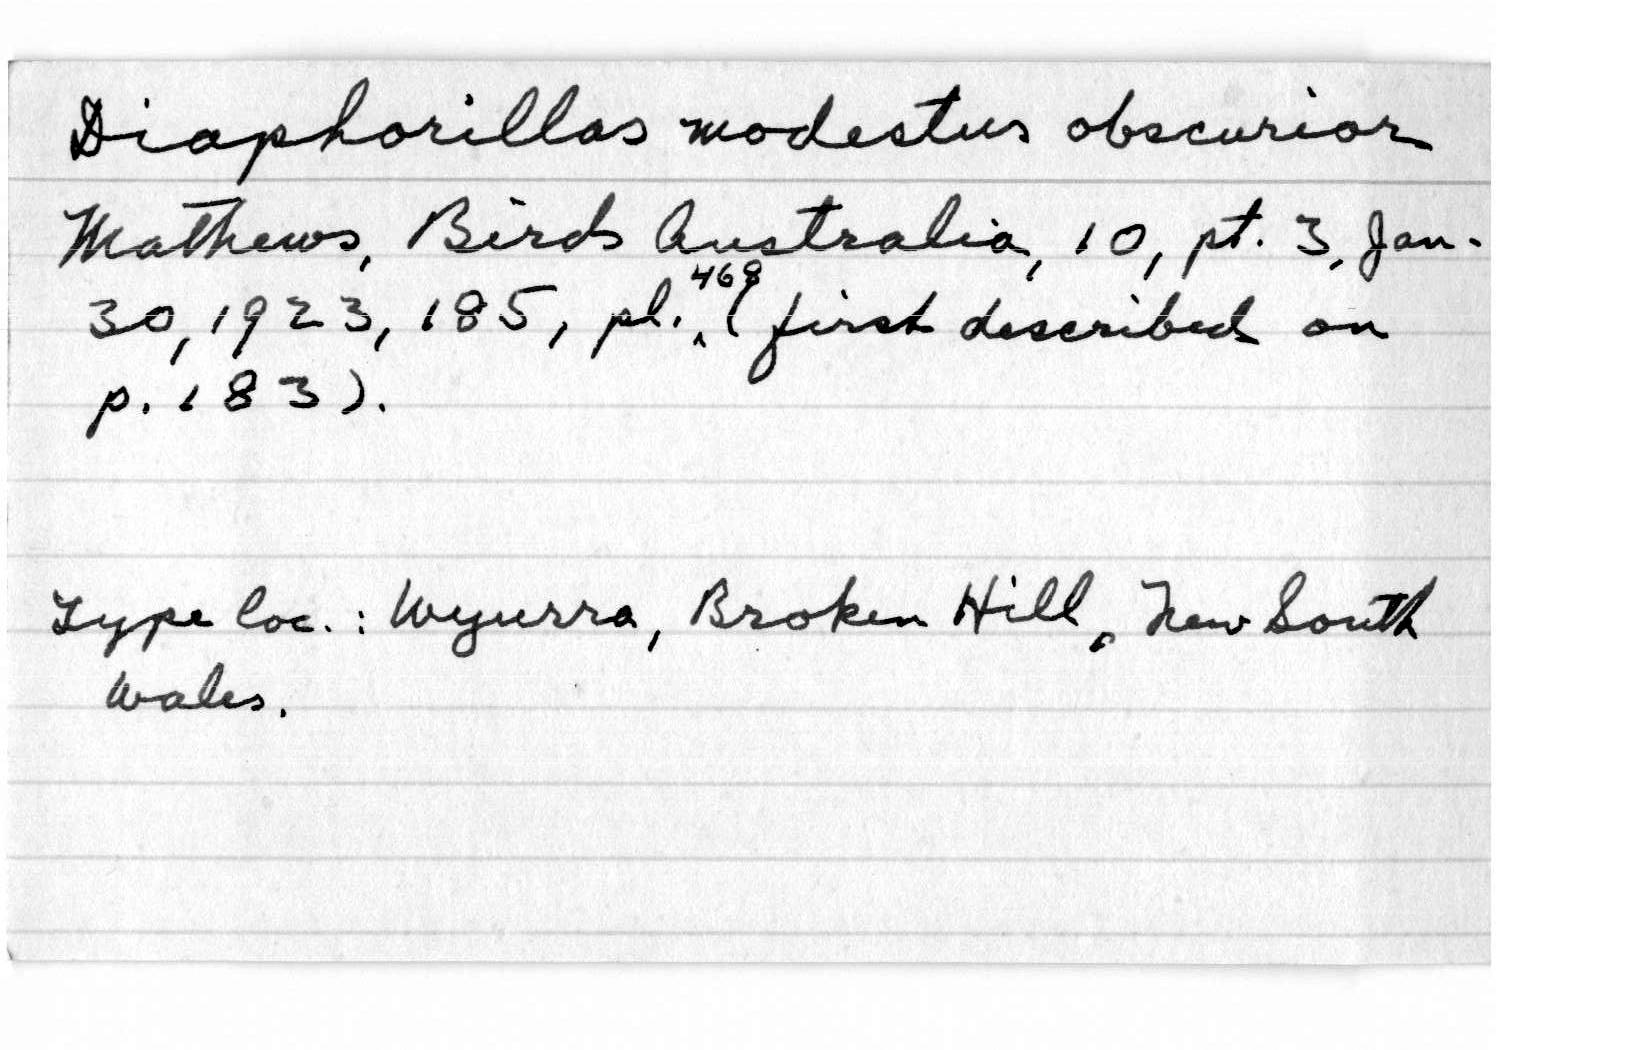 Diaphorillas modestus obscurior
Mathews, Birds Australia, 10, pt. 3, Jan.
30, 1923, 185, pl. 468 (first described on
p. 183).
Type loc.: Wyurra, Broken Hill, New South
Wales.